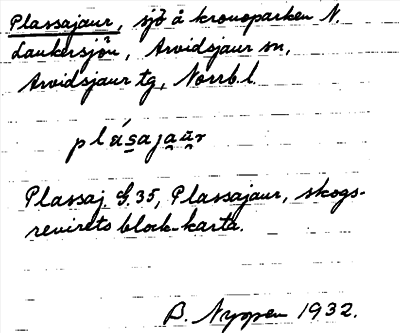 Plassajaur, sjö å kronoparken N.
Laukersjön, Arvidsjaur sn,
Arvidsjaur tg, Norrb. l.
plásaja̯a̯r
Plassaj. G. 35, Plassajaur, skogs-
revirets block-karta.
B. Nygren 1932.